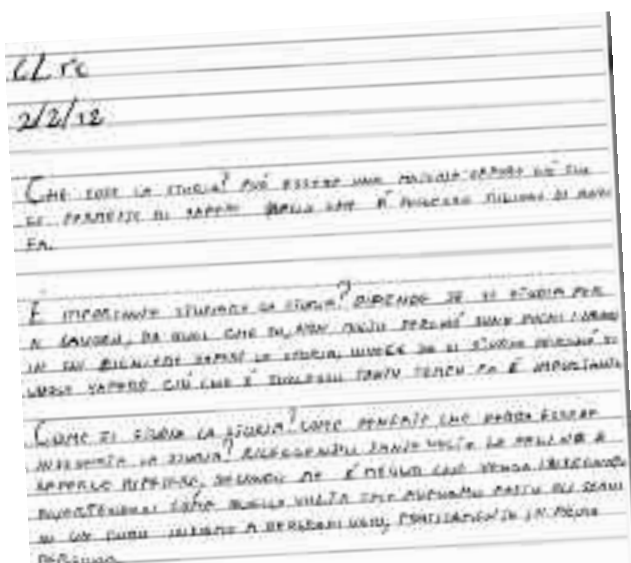 2/2/12
CHE COS'È LA STORIA? PUÒ ESSERE UNA MATERIA OPPURE CIÒ CHE
CI PERMETTE DI SAPERE QUELLO CHE È SUCCESSO MILIONI DI ANNI
FA.
È IMPORTANTE STUDIARE LA STORIA? DIPENDE SE SI STUDIA PER
IL LAVORO, DA QUEL CHE SO, NON MOLTO PERCHÉ SONO POCHI I LAVORI
IN CUI BISOGNA SAPERE LA STORIA, INVECE SE SI STUDIA PERCHÉ SI
VUOLE SAPERE CIÒ CHE È SUCCESSO TANTO TEMPO FA È IMPORTANTE
COME SI STUDIA LA STORIA? COME PENSATE CHE DEBBA ESSERE
INSEGNATA LA STORIA? RILEGGENDO TANTE VOLTE LA PAGINA E
SAPERLO RIPETERE, SECONDO ME È MEGLIO CHE VENGA INSEGNATA
DIVERTENDOSI COME QUELLA VOLTA CHE AVEVAMO FATTO GLI SCAVI
IN UN INTORNO A
PERSONA